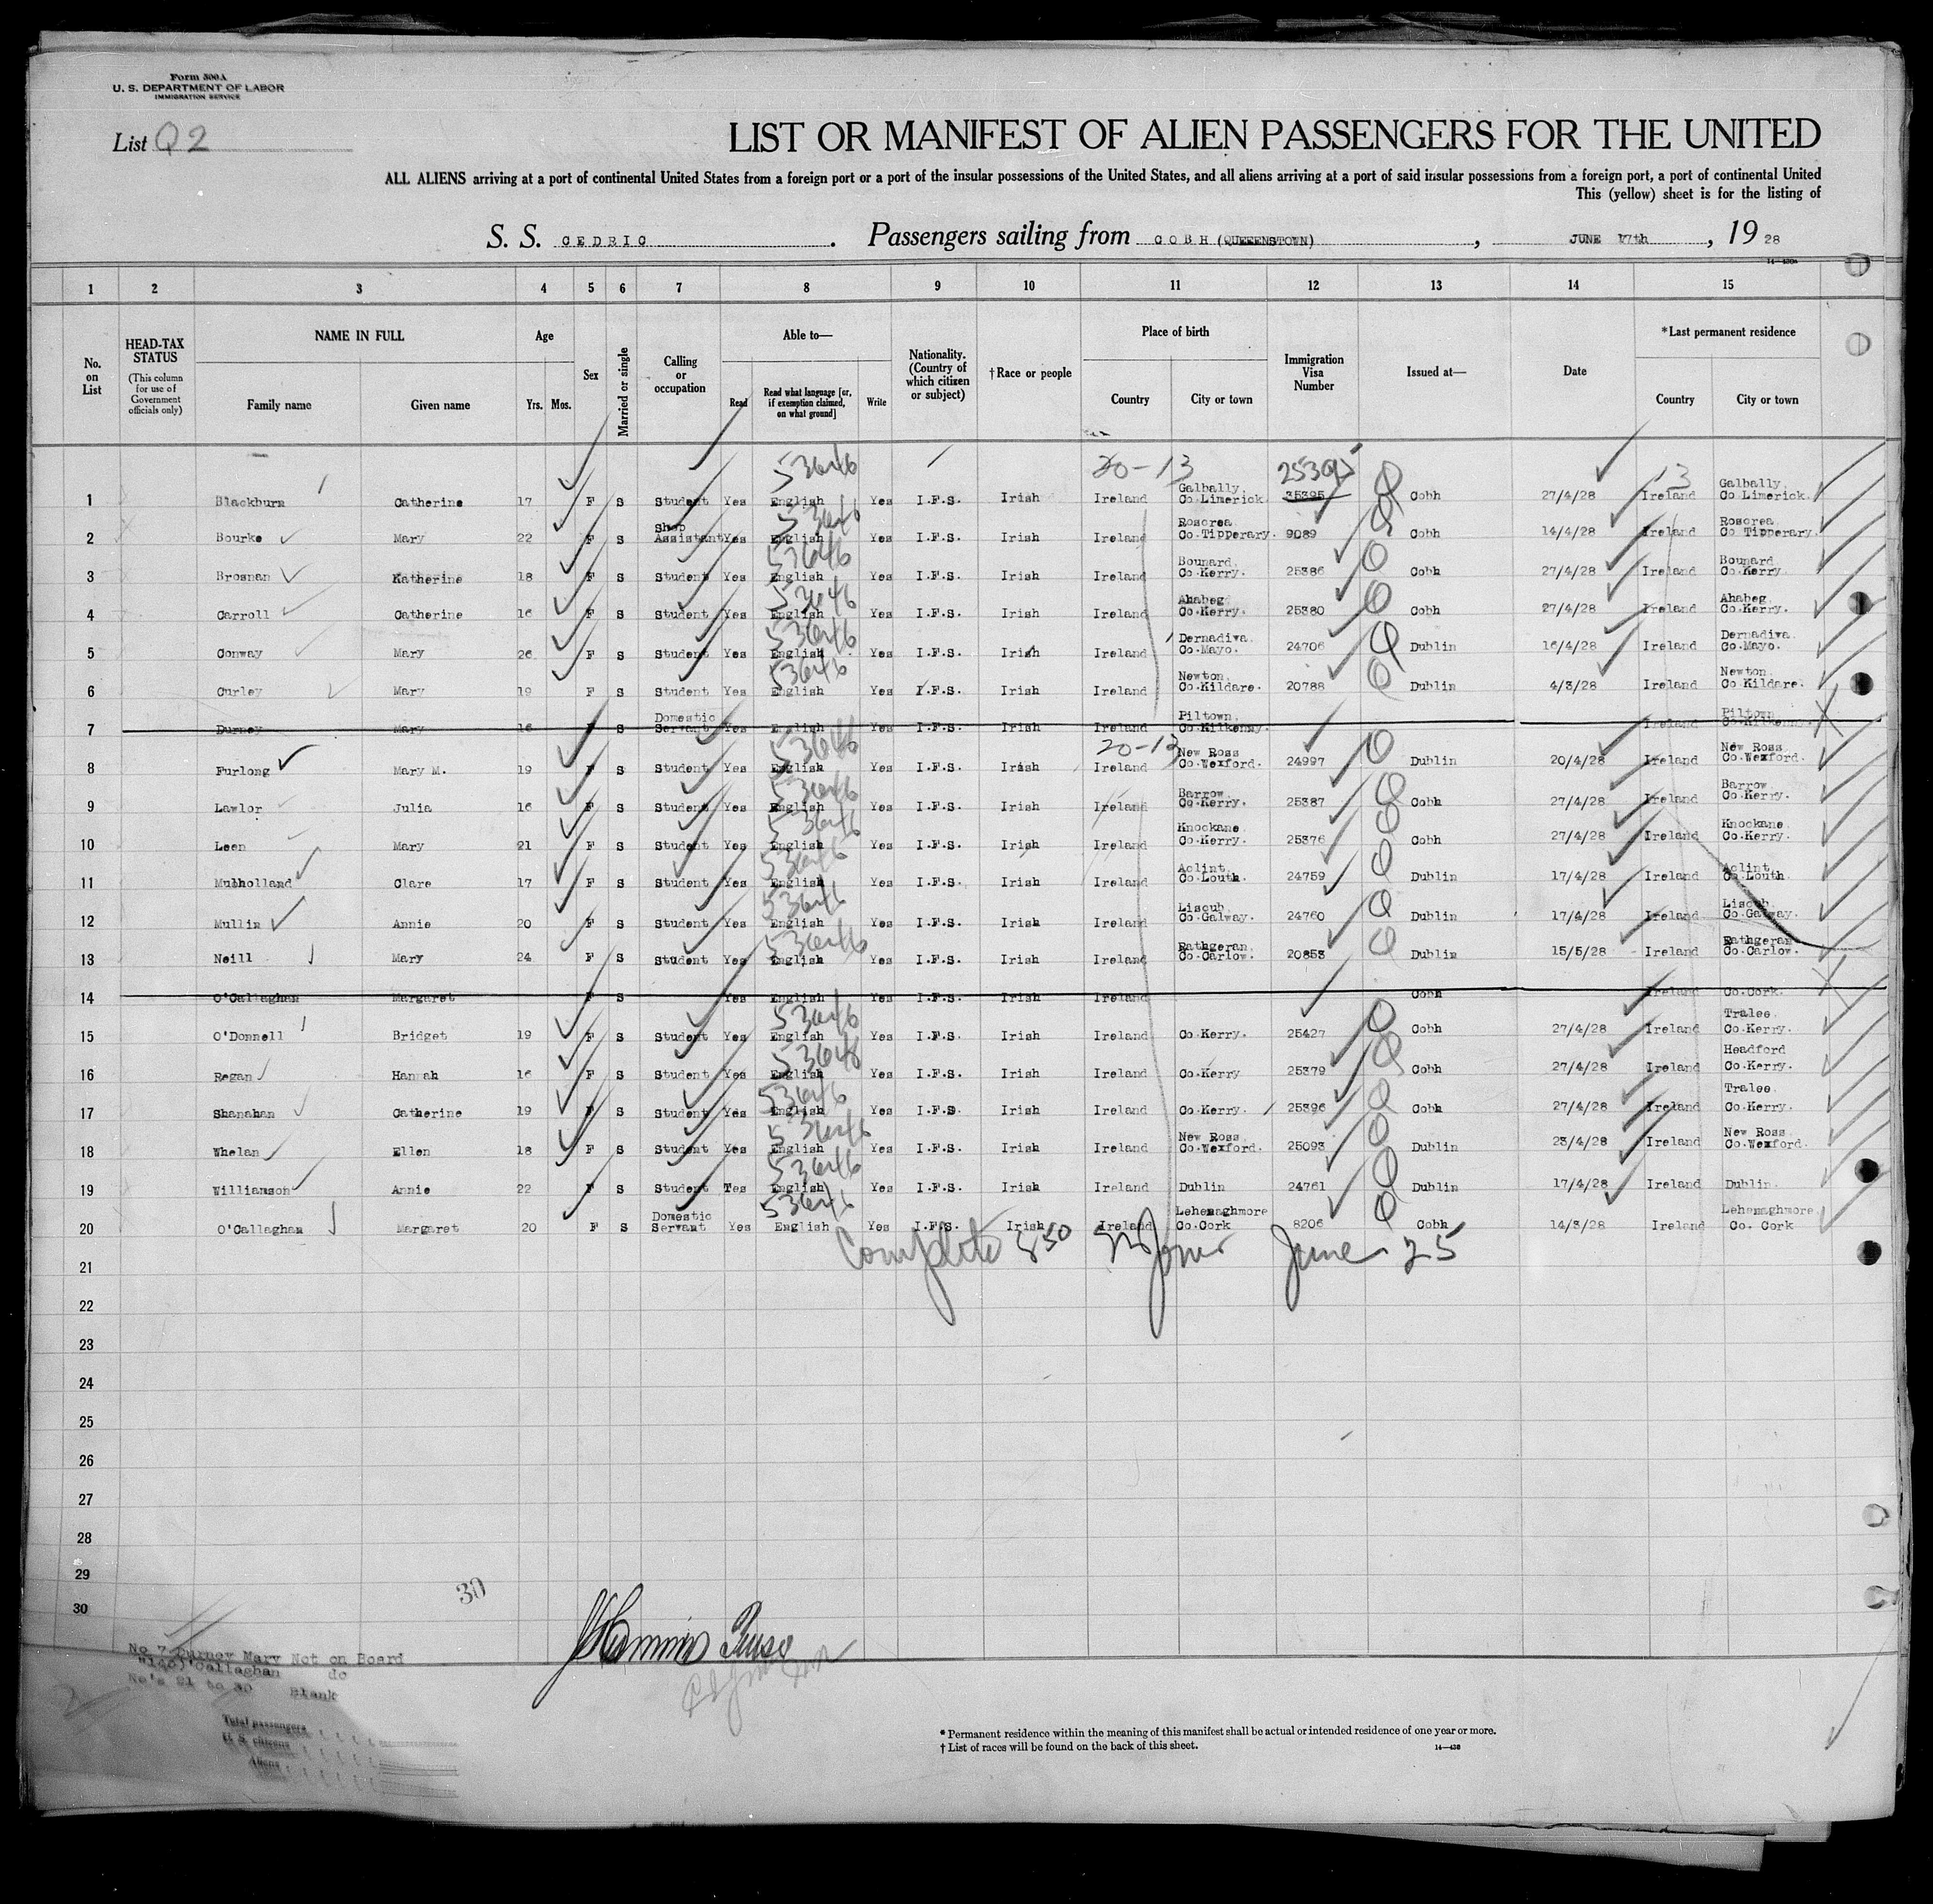 Form 500A
U. S. DEPARTMENT OF LABOR
IMMIGRATION SERVICE
List Q2
LIST OR MANIFEST OF ALIEN PASSENGERS FOR THE UNITED
ALL ALIENS arriving at a port of continental United States from a foreign port or a port of the insular possessions of the United States, and all aliens arriving at a port of said insular possessions from a foreign port, a port of continental United
This (yellow) sheet is for the listing of
S. S. CEDRIC . Passengers sailing from COBH (QUEENSTOWN) , JUNE 17th , 19 28
14—430a
1 2 3 4 5 6 7 8 9 10 11 12 13 14 15
No. on List
HEAD-TAX STATUS (This column for use of Government officials only)
NAME IN FULL Family name Given name
Age Yrs. Mos.
Sex
Married or single
Calling or occupation
Able to— Read Read what language [or, if exemption claimed, on what ground] Write
Nationality. (Country of which citizen or subject)
†Race or people
Place of birth Country City or town
Immigration Visa Number
Issued at—
Date
*Last permanent residence Country City or town
53646 20-13 25395 13
1 Blackburn Catherine 17 F S Student Yes English Yes I.F.S. Irish Ireland Galbally Co.Limerick 35395 Cobh 27/4/28 Ireland Galbally Co.Limerick.
53646
2 Bourke Mary 22 F S Shop Assistant Yes English Yes I.F.S. Irish Ireland Roscrea Co.Tipperary. 9089 Cobh 14/4/28 Ireland Roscrea Co Tipperary.
53646
3 Brosnan Katherine 18 F S Student Yes English Yes I.F.S. Irish Ireland Bounard Co.Kerry. 25386 Cobh 27/4/28 Ireland Bounard Co.Kerry.
53646
4 Carroll Catherine 16 F S Student Yes English Yes I.F.S. Irish Ireland Ahabeg Co.Kerry. 25380 Cobh 27/4/28 Ireland Ahabeg Co.Kerry.
53646
5 Conway Mary 26 F S Student Yes English Yes I.F.S. Irish Ireland Dernadiva. Co.Mayo. 24706 Dublin 16/4/28 Ireland Dernadiva. Co.Mayo.
53646
6 Curley Mary 19 F S Student Yes English Yes I.F.S. Irish Ireland Newton. Co.Kildare. 20788 Dublin 4/3/28 Ireland Newton. Co.Kildare.
7 Durney Mary 16 F S Domestic Servant Yes English Yes I.F.S. Irish Ireland Piltown. Co.Kilkenny. Ireland Piltown Co.Kilkenny.
53646 20-13
8 Furlong Mary M. 19 F S Student Yes English Yes I.F.S. Irish Ireland New Ross Co.Wexford. 24997 Dublin 20/4/28 Ireland New Ross. Co.Wexford.
53646
9 Lawlor Julia 16 F S Student Yes English Yes I.F.S. Irish Ireland Barrow. Co.Kerry. 25387 Cobh 27/4/28 Ireland Barrow Co.Kerry.
53646
10 Leen Mary 21 F S Student Yes English Yes I.F.S. Irish Ireland Knockane Co.Kerry. 25376 Cobh 27/4/28 Ireland Knockane Co.Kerry.
53646
11 Mulholland Clare 17 F S Student Yes English Yes I.F.S. Irish Ireland Aclint. Co.Louth. 24759 Dublin 17/4/28 Ireland Aclint. Co.Louth.
53646
12 Mullin Annie 20 F S Student Yes English Yes I.F.S. Irish Ireland Liscub. Co.Galway. 24760 Dublin 17/4/28 Ireland Liscub. Co.Galway.
53646
13 Neill Mary 24 F S Student Yes English Yes I.F.S. Irish Ireland Rathgeran Co.Carlow. 20853 Dublin 15/5/28 Ireland Rathgeran Co.Carlow.
14 O'Callaghan Margaret F S Yes English Yes I.F.S. Irish Ireland Cobh Ireland Co.Cork.
53646
15 O'Donnell Bridget 19 F S Student Yes English Yes I.F.S. Irish Ireland Co.Kerry. 25427 Cobh 27/4/28 Ireland Tralee. Co.Kerry.
53646
16 Regan Hannah 16 F S Student Yes English Yes I.F.S. Irish Ireland Co.Kerry 25379 Cobh 27/4/28 Ireland Headford Co.Kerry.
53646
17 Shanahan Catherine 19 F S Student Yes English Yes I.F.S. Irish Ireland Co.Kerry. 25396 Cobh 27/4/28 Ireland Tralee. Co.Kerry.
53646
18 Whelan Ellen 18 F S Student Yes English Yes I.F.S. Irish Ireland New Ross. Co.Wexford. 25093 Dublin 23/4/28 Ireland New Ross. Co.Wexford.
53646
19 Williamson Annie 22 F S Student Tes English Yes I.F.S. Irish Ireland Dublin 24761 Dublin 17/4/28 Ireland Dublin.
53646
20 O'Callaghan Margaret 20 F S Domestic Servant Yes English Yes I.F.S. Irish Ireland Lehenaghmore Co.Cork 8206 Cobh 14/3/28 Ireland Lehenaghmore. Co. Cork
Complete 850 June 25
21
22
23
24
25
26
27
28
29
30
30
No 7 Durney Mary Not on Board
"14 O'Callaghan do
No's 21 to 30 Blank
Total passengers
U. S. citizens
Aliens
* Permanent residence within the meaning of this manifest shall be actual or intended residence of one year or more.
† List of races will be found on the back of this sheet. 14—430